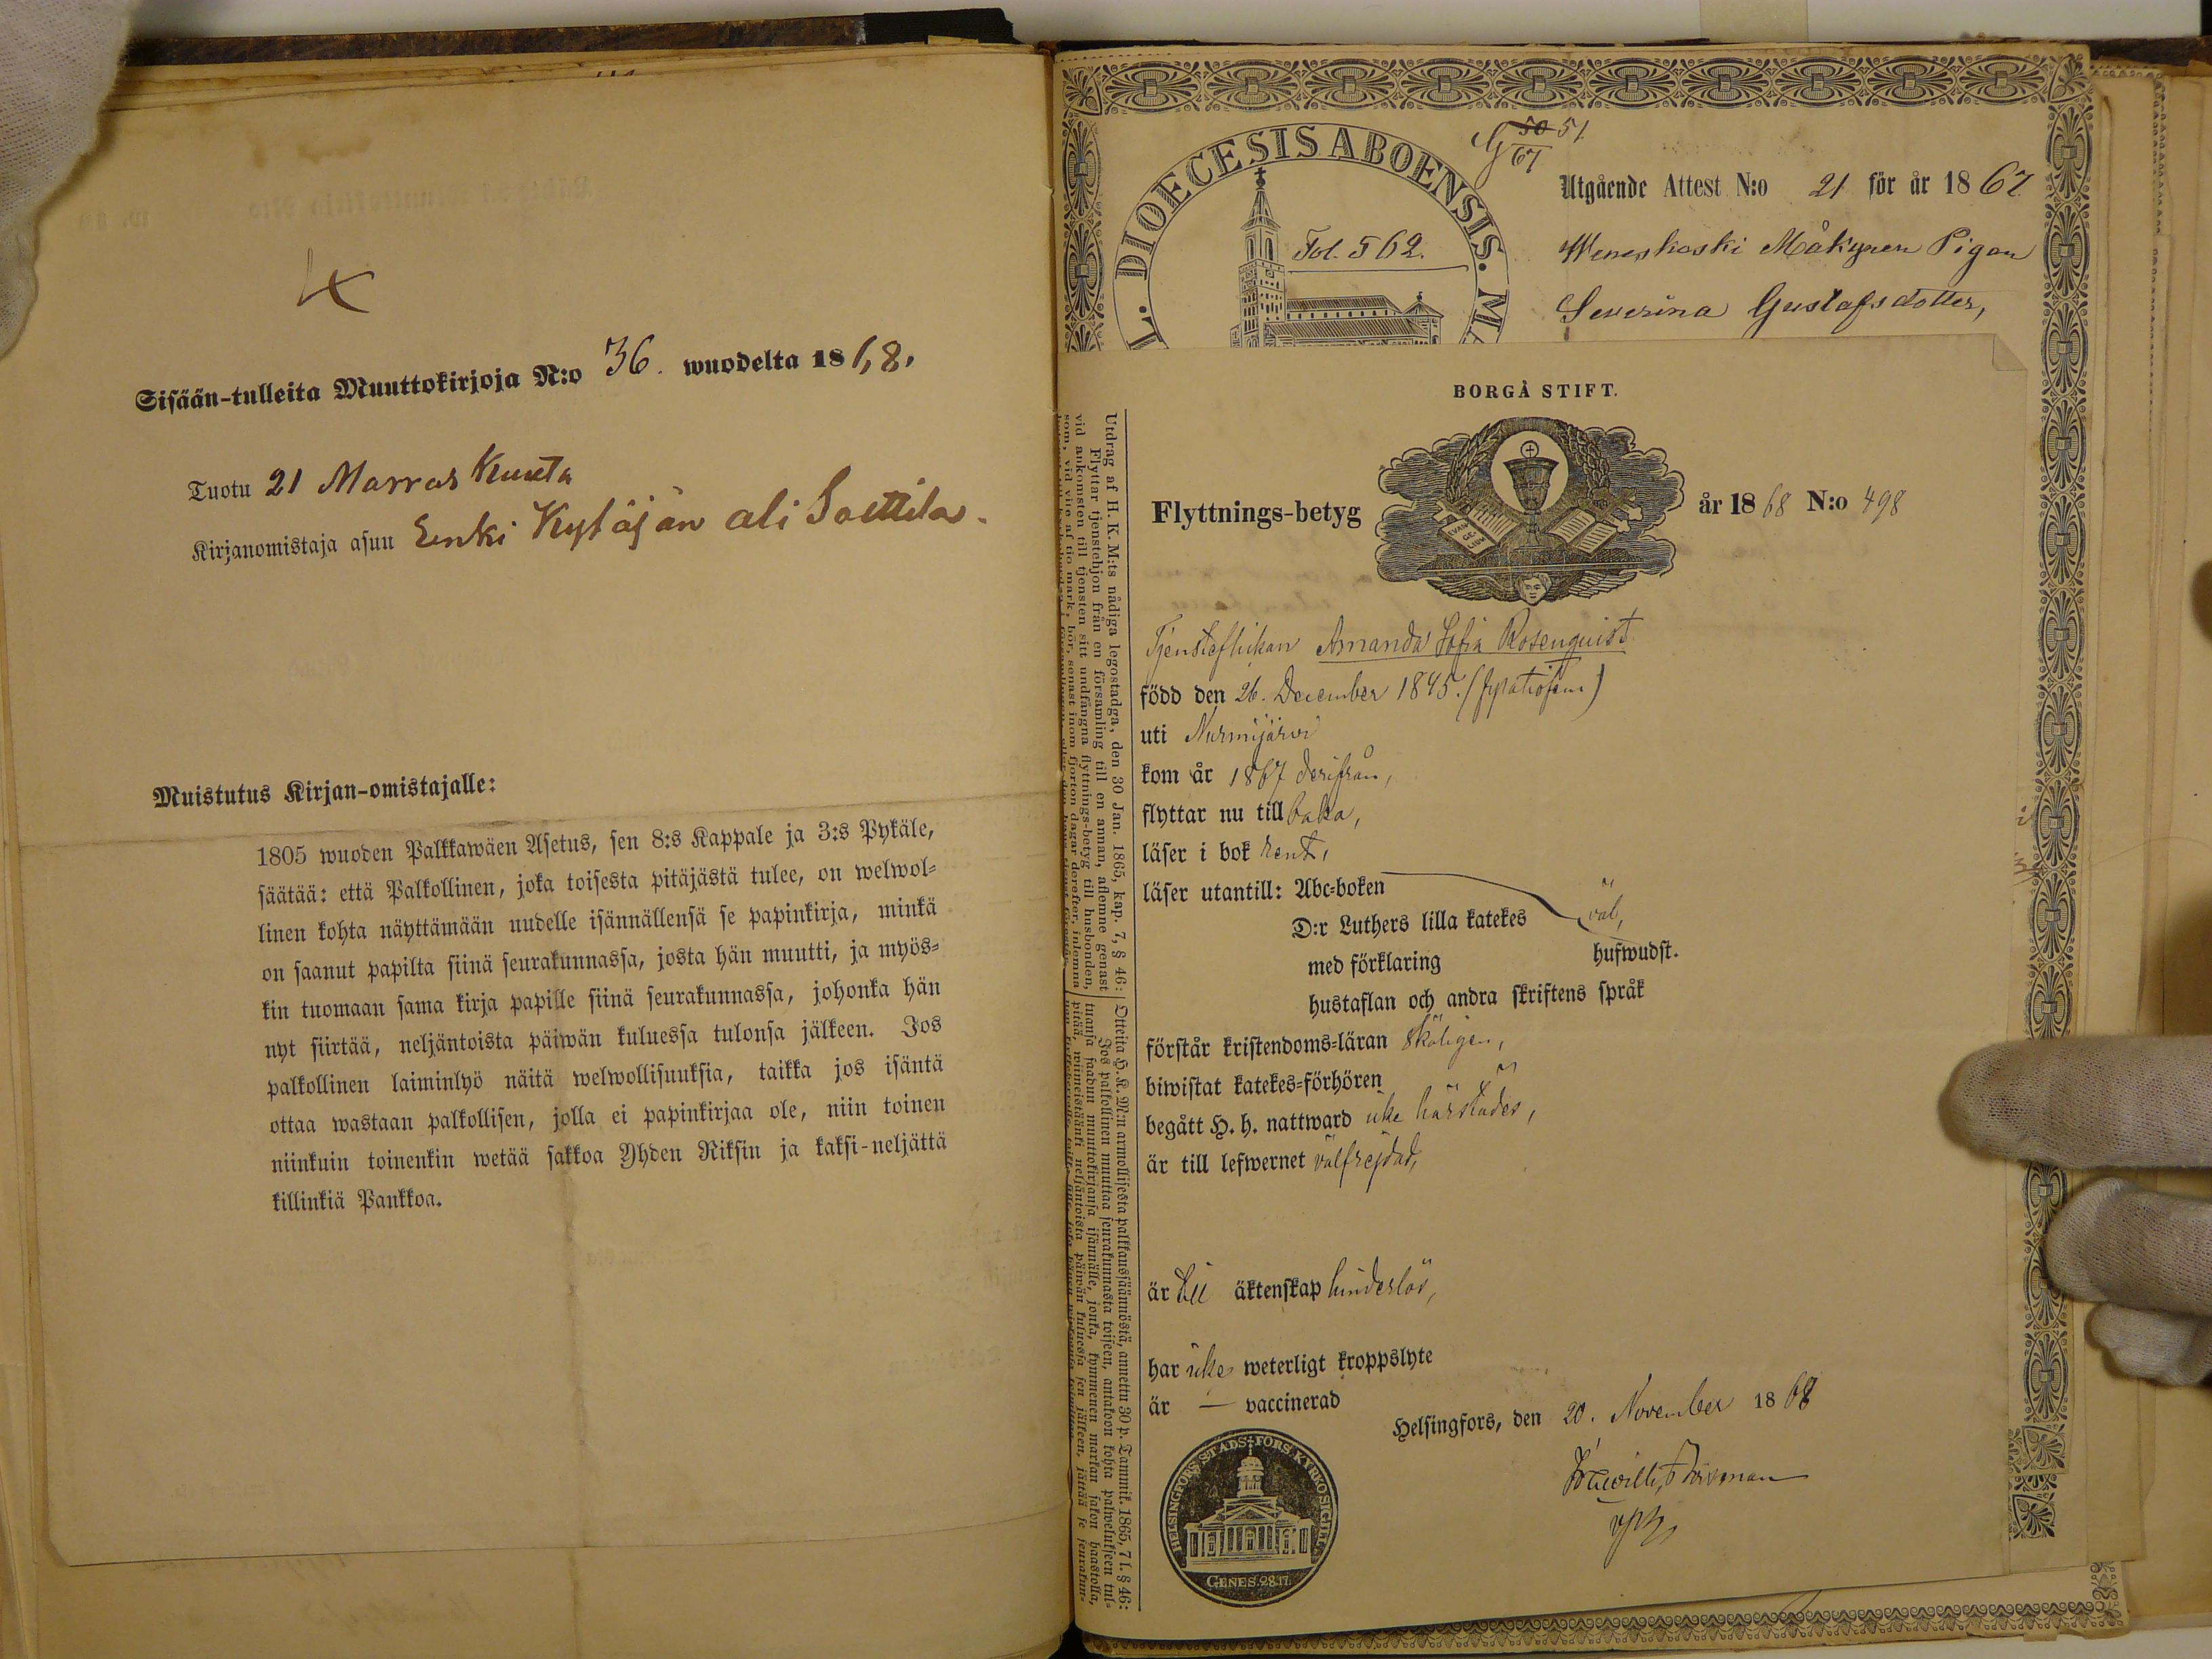 Sisään-tulleita Muuttokirjoja N:o 36. wuodelta 1868.
Tuotu 21 Marras Kuuta
Kirjanomistaja asuu Kytäjän ali
Muistutus Kirjan-omistajalle:
1805 wuoden Palkkawäen Asetus, sen 8:s Kappale ja 3:s Pykäle,
säätää: että Palkollinen, joka toisesta pitäjästä tulee, on welwol-
linen kohta näyttämään uudelle isännällensä se papinkirja, minkä
on saanut papilta siinä seurakunnassa, josta hän muutti, ja myös-
kin tuomaan sama kirja papille siinä seurakunnassa, johonka hän
nyt siirtää, neljäntoista päiwän kuluessa tulonsa jälkeen. Jos
palkollinen laiminlyö näitä welwollisuuksia, taikka jos isäntä
ottaa wastaan palkollisen, jolla ei papinkirjaa ole, niin toinen
niinkuin toinenkin wetää sakkoa Yhden Riksin ja kaksi-neljättä
killinkiä Pankkoa.
L. DIOECESIS ABOENSIS. MA
50 51
67
Fol. 562.
Utgående Attest N:o 21 för år 1867
Pigan
Severina Gustafsdotter,
BORGÅ STIFT.
EVAN GE LIUM
Flyttnings-betyg år 1868 N:o 498
Tjensteflickan Amanda Sofia Rosenquist
född den 26. December 1845. (fyratiofem)
uti Nurmijärvi
kom år 1867 derifrån,
flyttar nu tillbaka,
läser i bok rent,
läser utantill: Abc-boken
D:r Luthers lilla katekes väl,
med förklaring hufwudst.
hustaflan och andra skriftens språk
förstår kristendoms-läran skäligen,
biwistat katekes-förhören
begått H. h. nattward icke härstädes,
är till lefwernet välfrejdad,
är till äktenskap hinderlös,
har icke weterligt kroppslyte
är — vaccinerad
Helsingfors, den 20. November 1868
HELSINGFORS STADS FÖRS. KYRKOSIGILL
GENES. 28.17.
Utdrag af H. K. M:ts nådiga legostadga, den 30 Jan. 1865, kap. 7, § 46:
Flyttar tjenstehjon från en församling till en annan, aflemne genast
vid ankomsten till tjensten sitt undfångna flyttnings-betyg till husbonden,
som, vid vite af tio mark, bör, senast inom fjorton dagar derefter, inlemna
Otteita H. K. M:n armollisesta palkkaussäännöstä, annettu 30 p. Tammik. 1865, 7 l. § 46:
Jos palkollinen muuttaa seurakunnasta toiseen, antakoon kohta palwelukseen tul-
tuansa saadun muuttokirjansa isännälle, jonka, kymmenen markan sakon haastolla,
pitää, wiimeistäänki neljäntoista päiwän kuluessa sen jälkeen, jättää se seurakun-